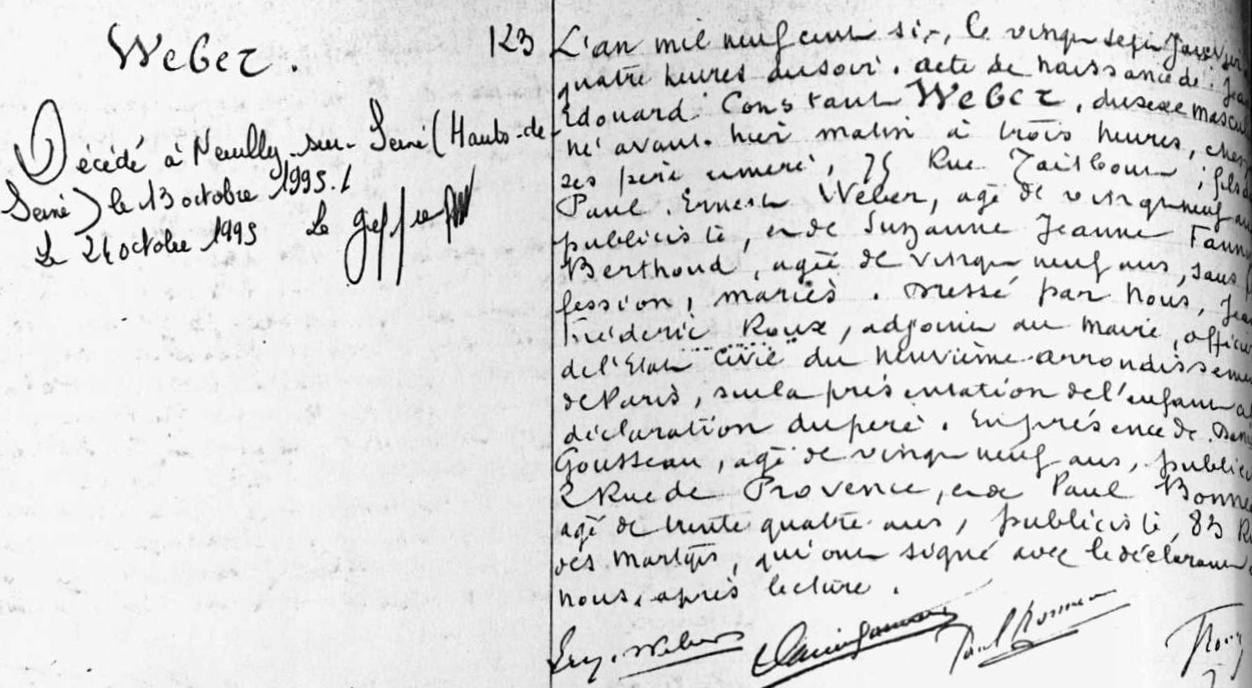 Weber.
Décédé à Neuilly-sur-Seine (Hauts-de-
Seine) le 13 octobre 1995./
Le 24 octobre 1995 Le
123
L'an mil neuf cent six, le vingt sept Janvier
quatre heures du soir. acte de naissance de: Jea
Edouard Constant Weber, du sexe mascu
né avant-hier matin à trois heures, chez
ses père et mère, 75 Rue Taitbout, fils d
Paul Ernest Weber, agé de vingt neuf an
publiciste, et de Suzanne Jeanne Fann
Berthoud, agée de vingt neuf ans, sans
fession, mariés. Dressé par Nous, Jea
Frédéric Roux, adjoint au Maire, officie
de l'Etat civil du neuvième arrondisseme
de Paris, sur la présentation de l'enfant
déclaration du père. En présence de
Gousseau, agé de vingt neuf ans, public
2 Rue de Provence, et de Paul Bonne
agé de trente quatre ans, publiciste, 83 R
des Martyrs, qui ont signé avec le déclarant
nous, après lecture.